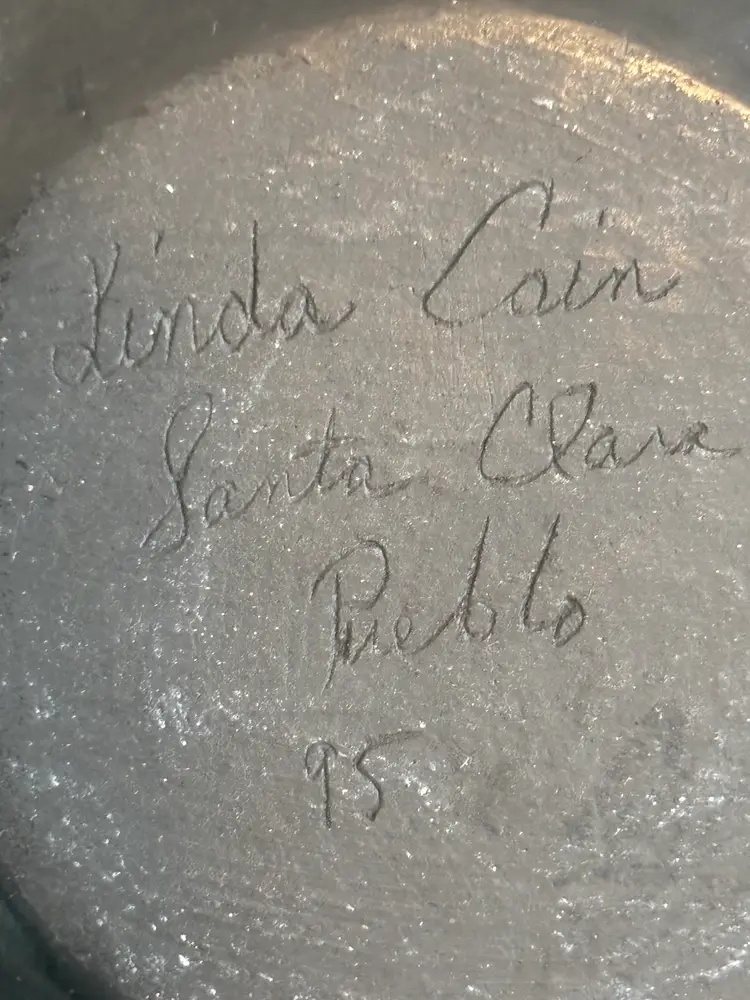 Linda Cain
Santa Clara
Pueblo
95